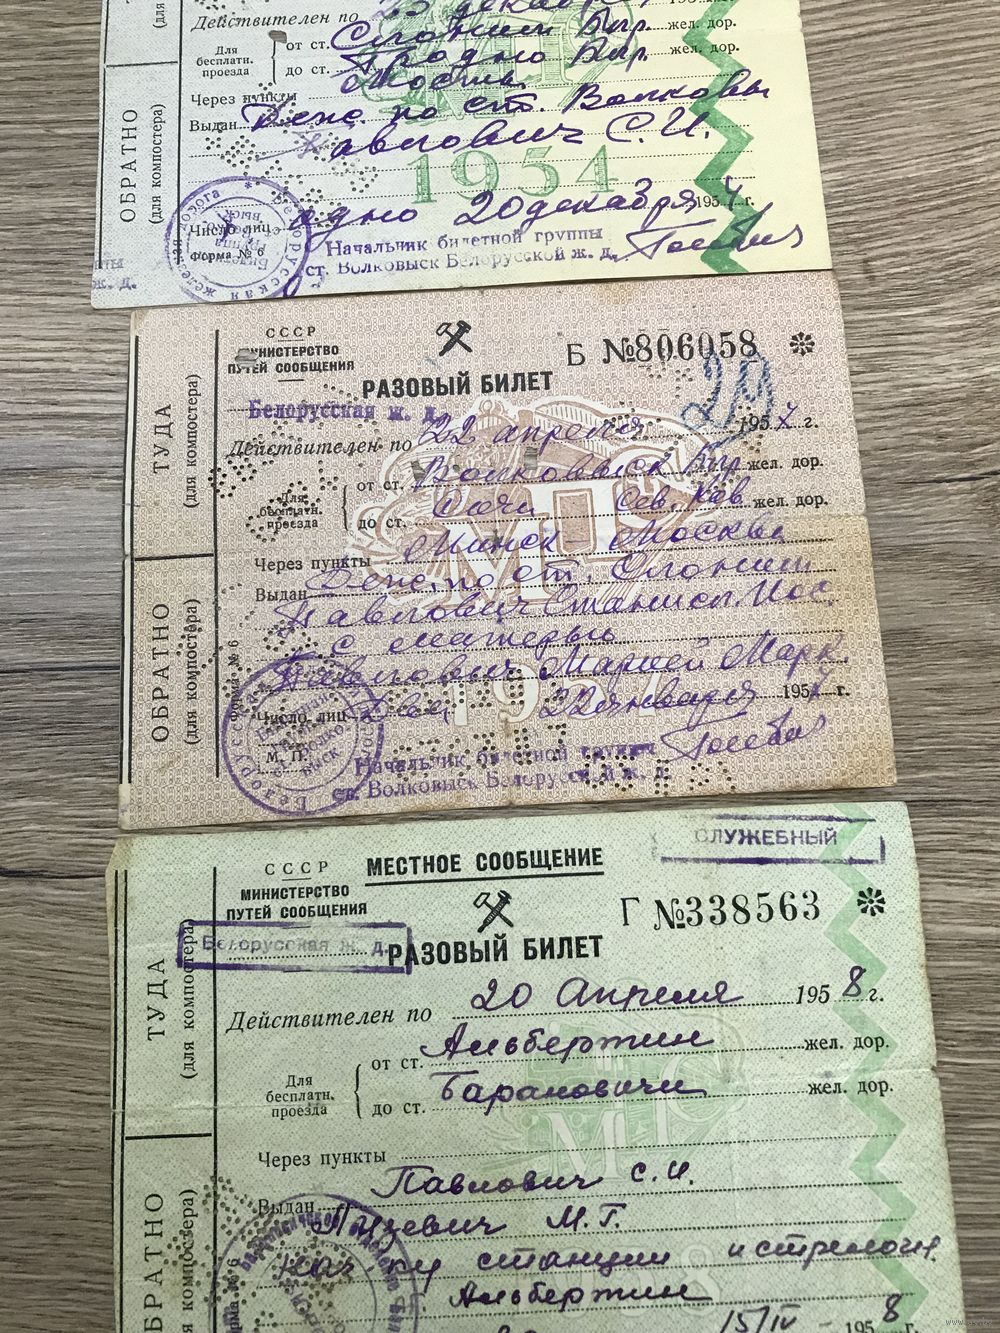 Действителен по 23 декабря
Для бесплатн. проезда
от ст. Слоним Блр. жел. дор.
до ст. Гродно Блр. жел. дор.
Через пункты Мосты
Выдан Деж. по ст. Волковы
Павлович С. И.
1954
Число лиц одно 20 декабря 1954 г.
Форма № 6
Начальник билетной группы
ст. Волковыск Белорусской ж. д.
ОБРАТНО
(для компостера)
СССР
МИНИСТЕРСТВО
ПУТЕЙ СООБЩЕНИЯ
Б №806058
29
РАЗОВЫЙ БИЛЕТ
Белорусская ж. д.
Действителен по 22 апреля 1957 г.
Для бесплатн. проезда
от ст. Волковыск Блр. жел. дор.
до ст. Сочи Сев. Кав. жел. дор.
Через пункты Минск - Москва
Выдан Деж. по ст. Слоним
Павлович Станисл. Иос.
с матерью
Павлович Марией Марк.
1957
Число лиц Два, 22 января 1957 г.
М. П.
Форма № 6
Начальник билетной группы
ст. Волковыск Белорусской ж. д.
ТУДА
(для компостера)
ОБРАТНО
(для компостера)
СЛУЖЕБНЫЙ
СССР
МИНИСТЕРСТВО
ПУТЕЙ СООБЩЕНИЯ
МЕСТНОЕ СООБЩЕНИЕ
Г №338563
Белорусская ж. д.
РАЗОВЫЙ БИЛЕТ
Действителен по 20 Апреля 1958 г.
Для бесплатн. проезда
от ст. Альбертин жел. дор.
до ст. Барановичи жел. дор.
Через пункты
Выдан Павлович С. И.
М. Г.
станции и
Альбертин
15/IV - 1958 г.
ТУДА
(для компостера)
ОБРАТНО
(для компостера)
Форма № 6